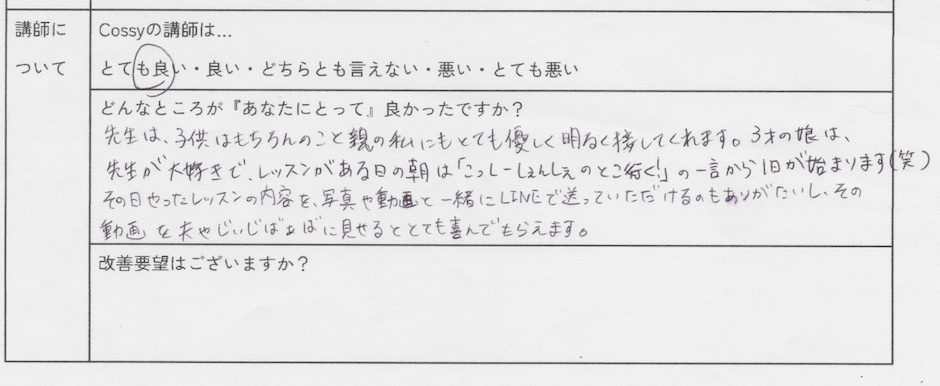 講師に
ついて
Cossyの講師は…
とても良い・良い・どちらとも言えない・悪い・とても悪い
どんなところが『あなたにとって』良かったですか？
先生は、子供はもちろんのこと親の私にもとても優しく明るく接してくれます。3才の娘は、
先生が大好きで、レッスンがある日の朝は「こっしーしぇんしぇのとこ行く!」の一言から1日が始まります(笑)
その日やったレッスンの内容を、写真や動画と一緒にLINEで送っていただけるのもありがたいし、その
動画を夫やじいじばぁばに見せるととても喜んでもらえます。
改善要望はございますか？